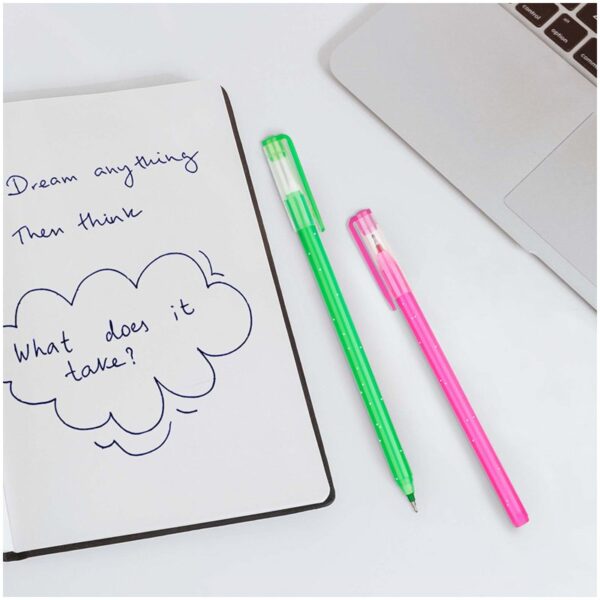 Dream anything
Then think
What does it
take?
control
option
command